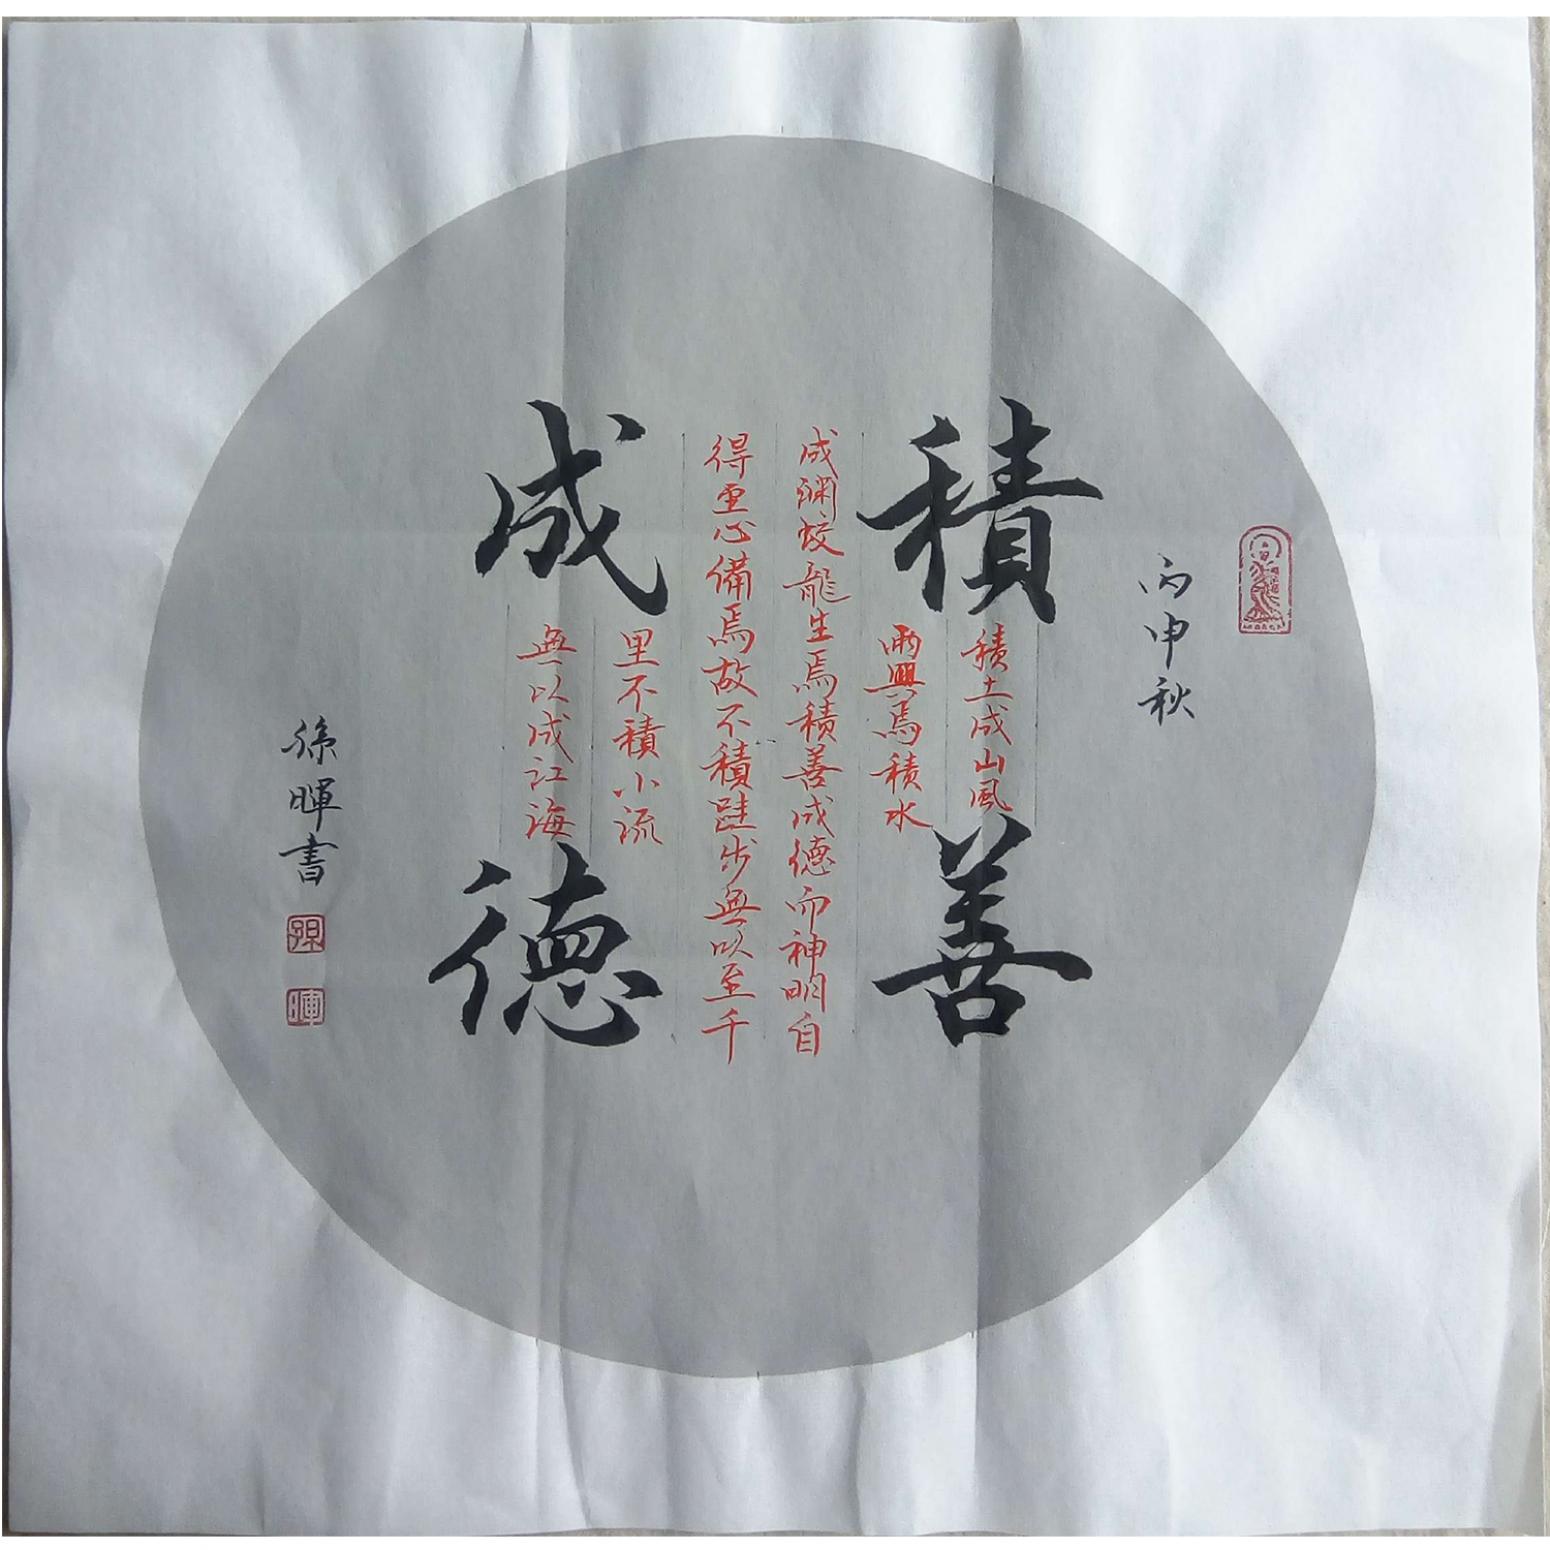 丙申秋
積善
成德
積土成山風
雨興焉積水
成渊蛟龍生焉積善成德而神明自
得聖心備焉故不積跬步無以至千
里不積小流
無以成江海
孫暉書
孫
暉